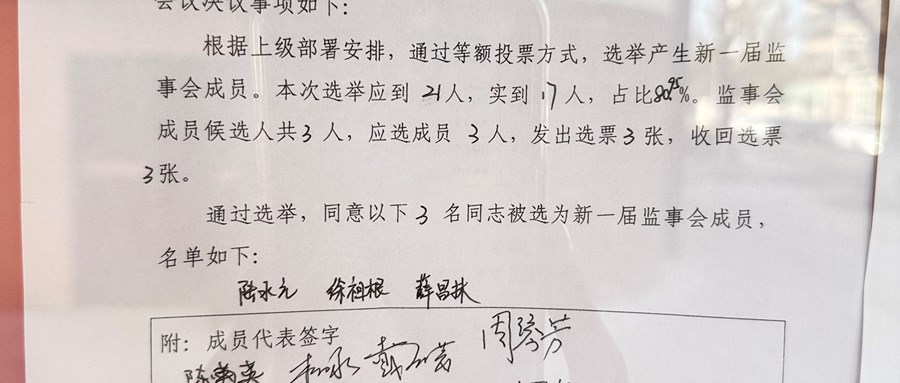 会议决议事项如下：
根据上级部署安排，通过等额投票方式，选举产生新一届监
事会成员。本次选举应到 21人，实到 17人，占比80.95%。监事会
成员候选人共3人，应选成员 3人，发出选票3张，收回选票
3张。
通过选举，同意以下 3 名同志被选为新一届监事会成员，
名单如下：
陆水元 徐祖根 薛昌扶
附：成员代表签字